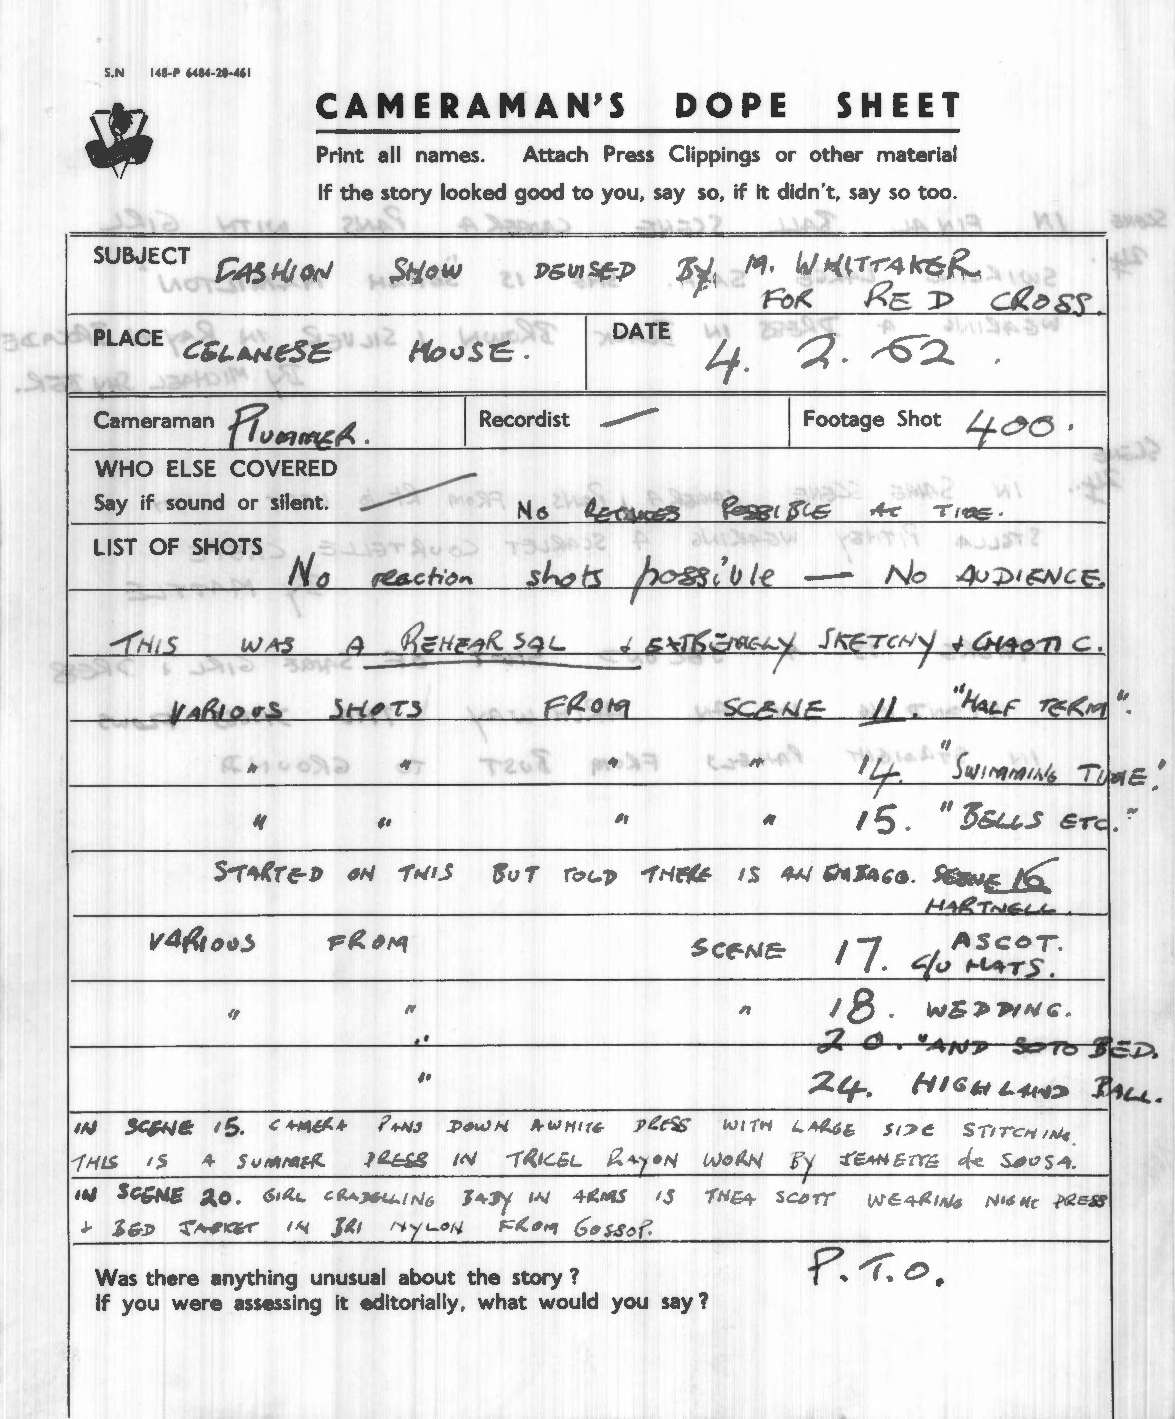 S.N 148-P 6484-20-461
CAMERAMAN'S DOPE SHEET
Print all names. Attach Press Clippings or other material
If the story looked good to you, say so, if it didn't, say so too.
SUBJECT FASHION SHOW DEVISED By. M. WHITTAKER
FOR RED CROSS.
PLACE CELANESE HOUSE. DATE 4. 2. 62.
Cameraman Plummer. Recordist — Footage Shot 400.
WHO ELSE COVERED
Say if sound or silent. — No POSSIBLE AT TIME.
LIST OF SHOTS
No reaction shots possible — No AUDIENCE.
THIS WAS A REHEARSAL & EXTREMELY SKETCHY & CHAOTIC.
VARIOUS SHOTS FROM SCENE 11. "HALF TERM".
" " " " 14. "SWIMMING TIME."
" " " " 15. "BELLS ETC."
STARTED ON THIS BUT TOLD THERE IS AN EMBAGO. SCENE 16
HARTNELL.
VARIOUS FROM SCENE 17. ASCOT.
C/U HATS.
" " " 18. WEDDING.
" 20. "AND SO TO BED.
" 24. HIGHLAND BALL.
IN SCENE 15. CAMERA PANS DOWN A WHITE DRESS WITH LARGE SIDE STITCHING.
THIS IS A SUMMER DRESS IN TRICEL RAYON WORN BY JEANETTE de SOUSA.
IN SCENE 20. GIRL CRADELLING BABY IN ARMS IS THEA SCOTT WEARING NIGHT DRESS
& BED JACKET IN BRI NYLON FROM GOSSOP.
P.T.O.
Was there anything unusual about the story?
If you were assessing it editorially, what would you say?